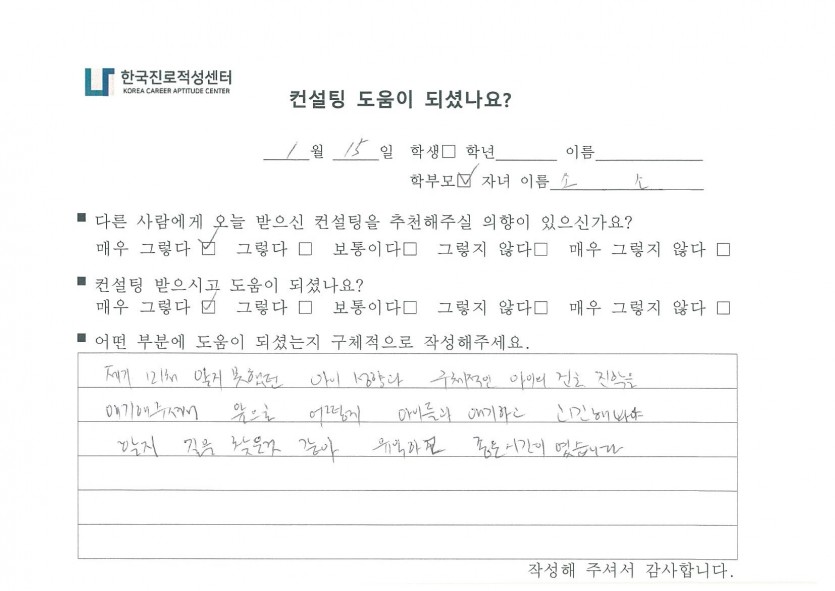 한국진로적성센터
KOREA CAREER APTITUDE CENTER
컨설팅 도움이 되셨나요?
1월 15일 학생□ 학년 이름
학부모☑ 자녀 이름 소 소
■ 다른 사람에게 오늘 받으신 컨설팅을 추천해주실 의향이 있으신가요?
매우 그렇다 ☑ 그렇다 □ 보통이다□ 그렇지 않다□ 매우 그렇지 않다 □
■ 컨설팅 받으시고 도움이 되셨나요?
매우 그렇다 ☑ 그렇다 □ 보통이다□ 그렇지 않다□ 매우 그렇지 않다 □
■ 어떤 부분에 도움이 되셨는지 구체적으로 작성해주세요.
제가 미처 알지 못했던 아이 성향과 구체적인 아이의 진로 진학을
얘기해주셔서 앞으로 어떻게 아이들과 얘기하고 해봐야
할지 길을 찾은것 같아 유익하고 좋은시간이 였습니다
작성해 주셔서 감사합니다.